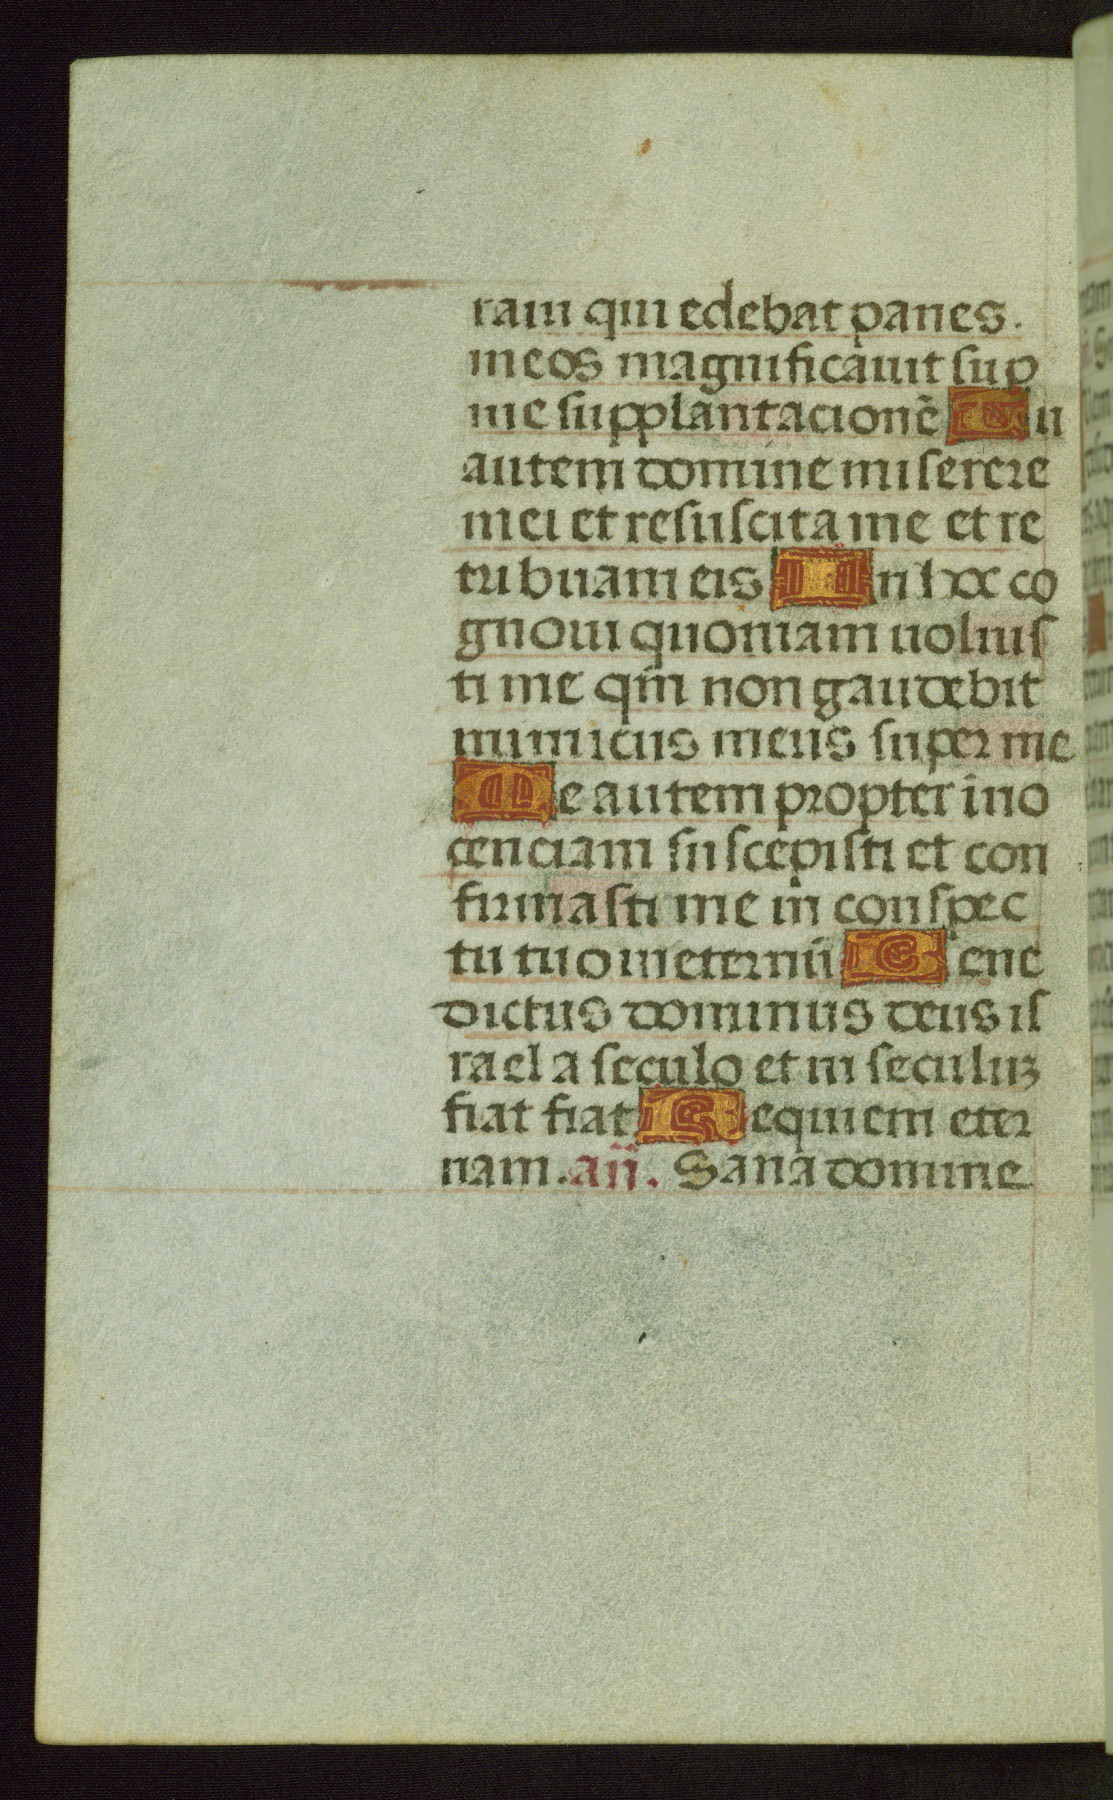 ram qui edebat panes.
meos magnificauit sup
me supplantacionē Tu
autem domine miserere
mei et resuscita me et re
tribuam eis In hoc co
gnoui quoniam uoluis
ti me qm̄ non gaudebit
inimicus meus super me
Me autem propter ino
cenciam suscepisti et con
firmasti me in conspec
tu tuo in eternū Bene
dictus dominus deus is
rael a seculo et in seculuꝫ
fiat fiat Requiem eter
nam. añ. Sana domine